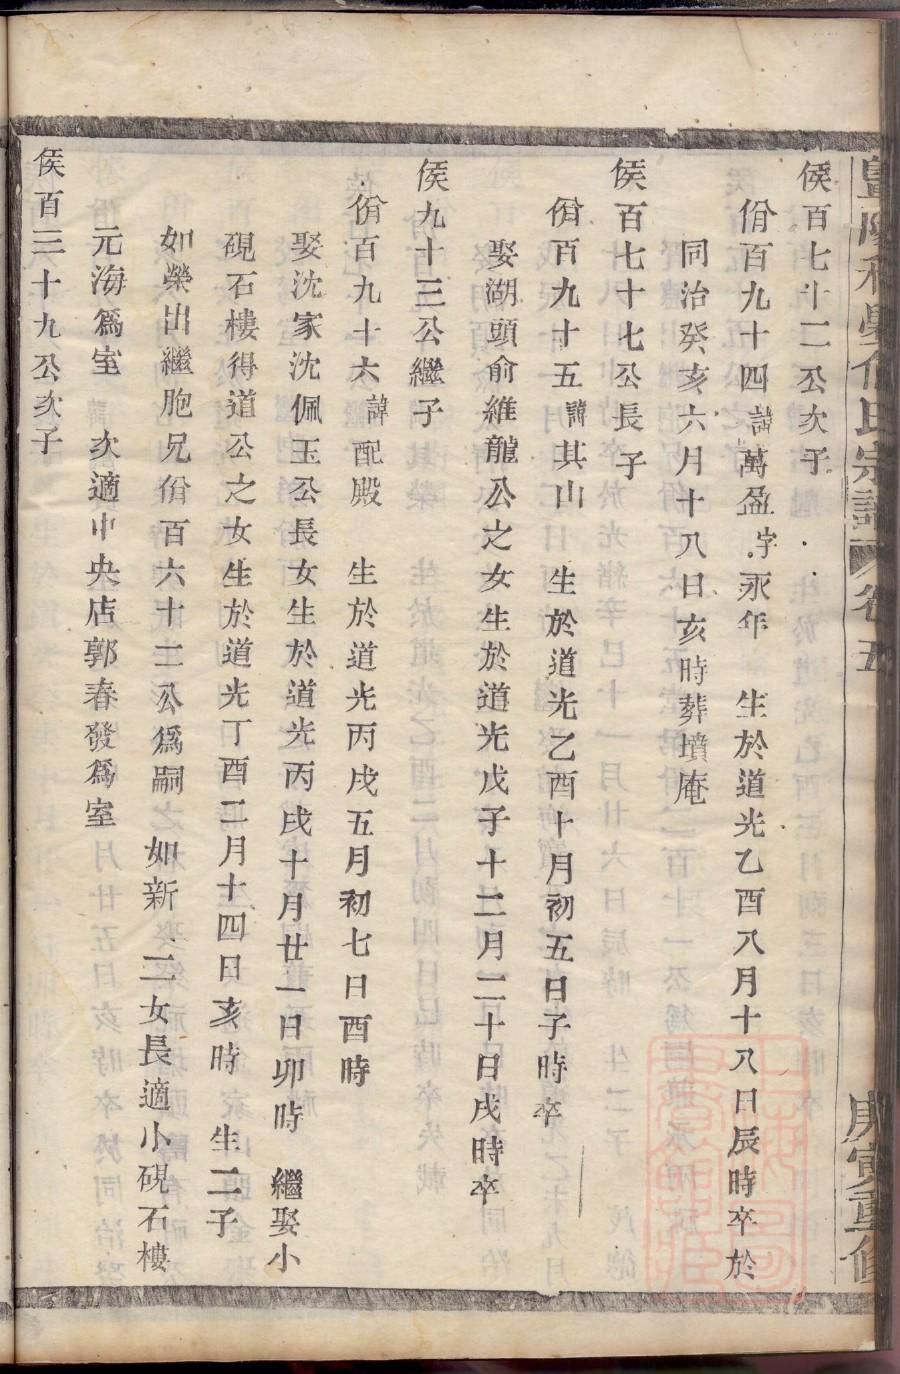 侯百七十二公次子
佾百九十四諱萬盈字永年 生於道光乙酉八月十八日辰時卒於
同治癸亥六月十八日亥時葬墳庵
侯百七十七公長子
佾百九十五諱其山 生於道光乙酉十月初五日子時卒
娶湖頭俞維龍公之女生於道光戊子十二月二十日戌時卒
侯九十三公繼子
佾百九十六諱配殿 生於道光丙戌五月初七日酉時
娶沈家沈佩玉公長女生於道光丙戌十月廿一日卯時 繼娶小
硯石樓得道公之女生於道光丁酉二月十四日亥時 生二子
如榮出繼胞兄佾百六十二公爲嗣 如新 二女長適小硯石樓
元海爲室 次適中央店郭春發爲室
侯百三十九公次子
宗譜 卷五
庚寅重修